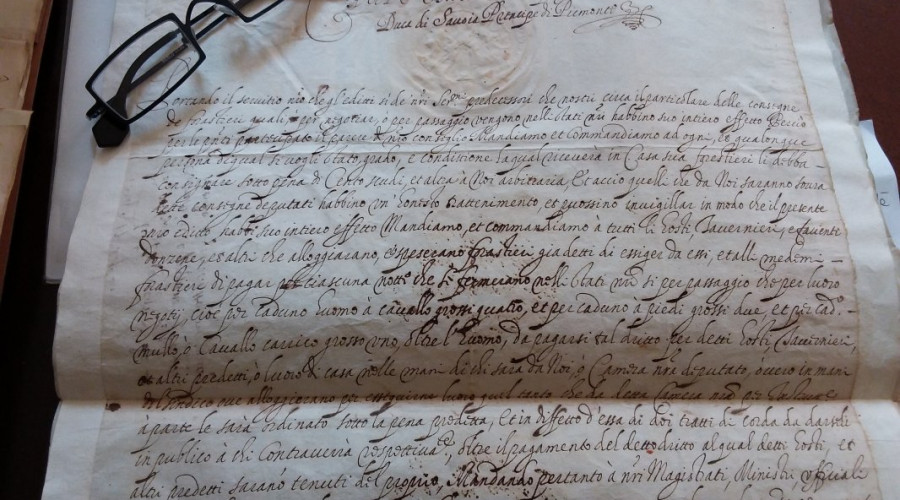 Duca di Savoia Prencipe di Piemonte
il servitio nro che gli editti si de nri Ser.mi predecessori che nostri circa il particolare delle consigne
de forastieri quali per negotiar, o per passaggio vengono nelli Stati nri habbino suo intiero effetto
il parere nro consiglio Mandiamo et Commandiamo ad ogni, et qualonque
persona di qual si voglia stato, grado, e conditione la qual riceverà in Casa sua forestieri li debba
consignare sotto pena di Cento scudi, et altra à Noi arbitraria, Et accio quelli che da Noi saranno sovra
dette consigne deputati habbino un' honesto trattenimento, et possino invigillar in modo che il presente
nro editto habbi suo intiero effetto Mandiamo, et commandiamo à tutti li Hosti, Tavernieri,
et altri che alloggiarano, forastieri già detti di essiger da essi, et alli medemi
forastieri di pagar per ciascuna notte che si fermerano nelli Stati nri si per passaggio che per luoro
negotij, cioè per caduno huomo à cavallo grossi quatro, et per caduno à piedi grossi due, et per cad.
mullo, o Cavallo carrico grosso uno, oltre l'huomo, da pagarsi tal dritto per detti Hosti, Tavernieri,
et altri predetti, o luoro di casa nelle mani di chi sarà da Noi, o Camera nra deputato, overo in mani
del Sindico ove alloggierano per luoro quel tanto che da detta Camera nra per
à parte le sarà ordinato sotto la pena predetta, Et in diffetto d'essa di doi tratti di corda da darseli
in publico à chi Contraverrà respettiva.te, oltre il pagamento del detto dritto al qual detti Hosti, et
altri predetti sarano tenuti del proprio, Mandando pertanto à nri Magistrati, Ministri, Officiali